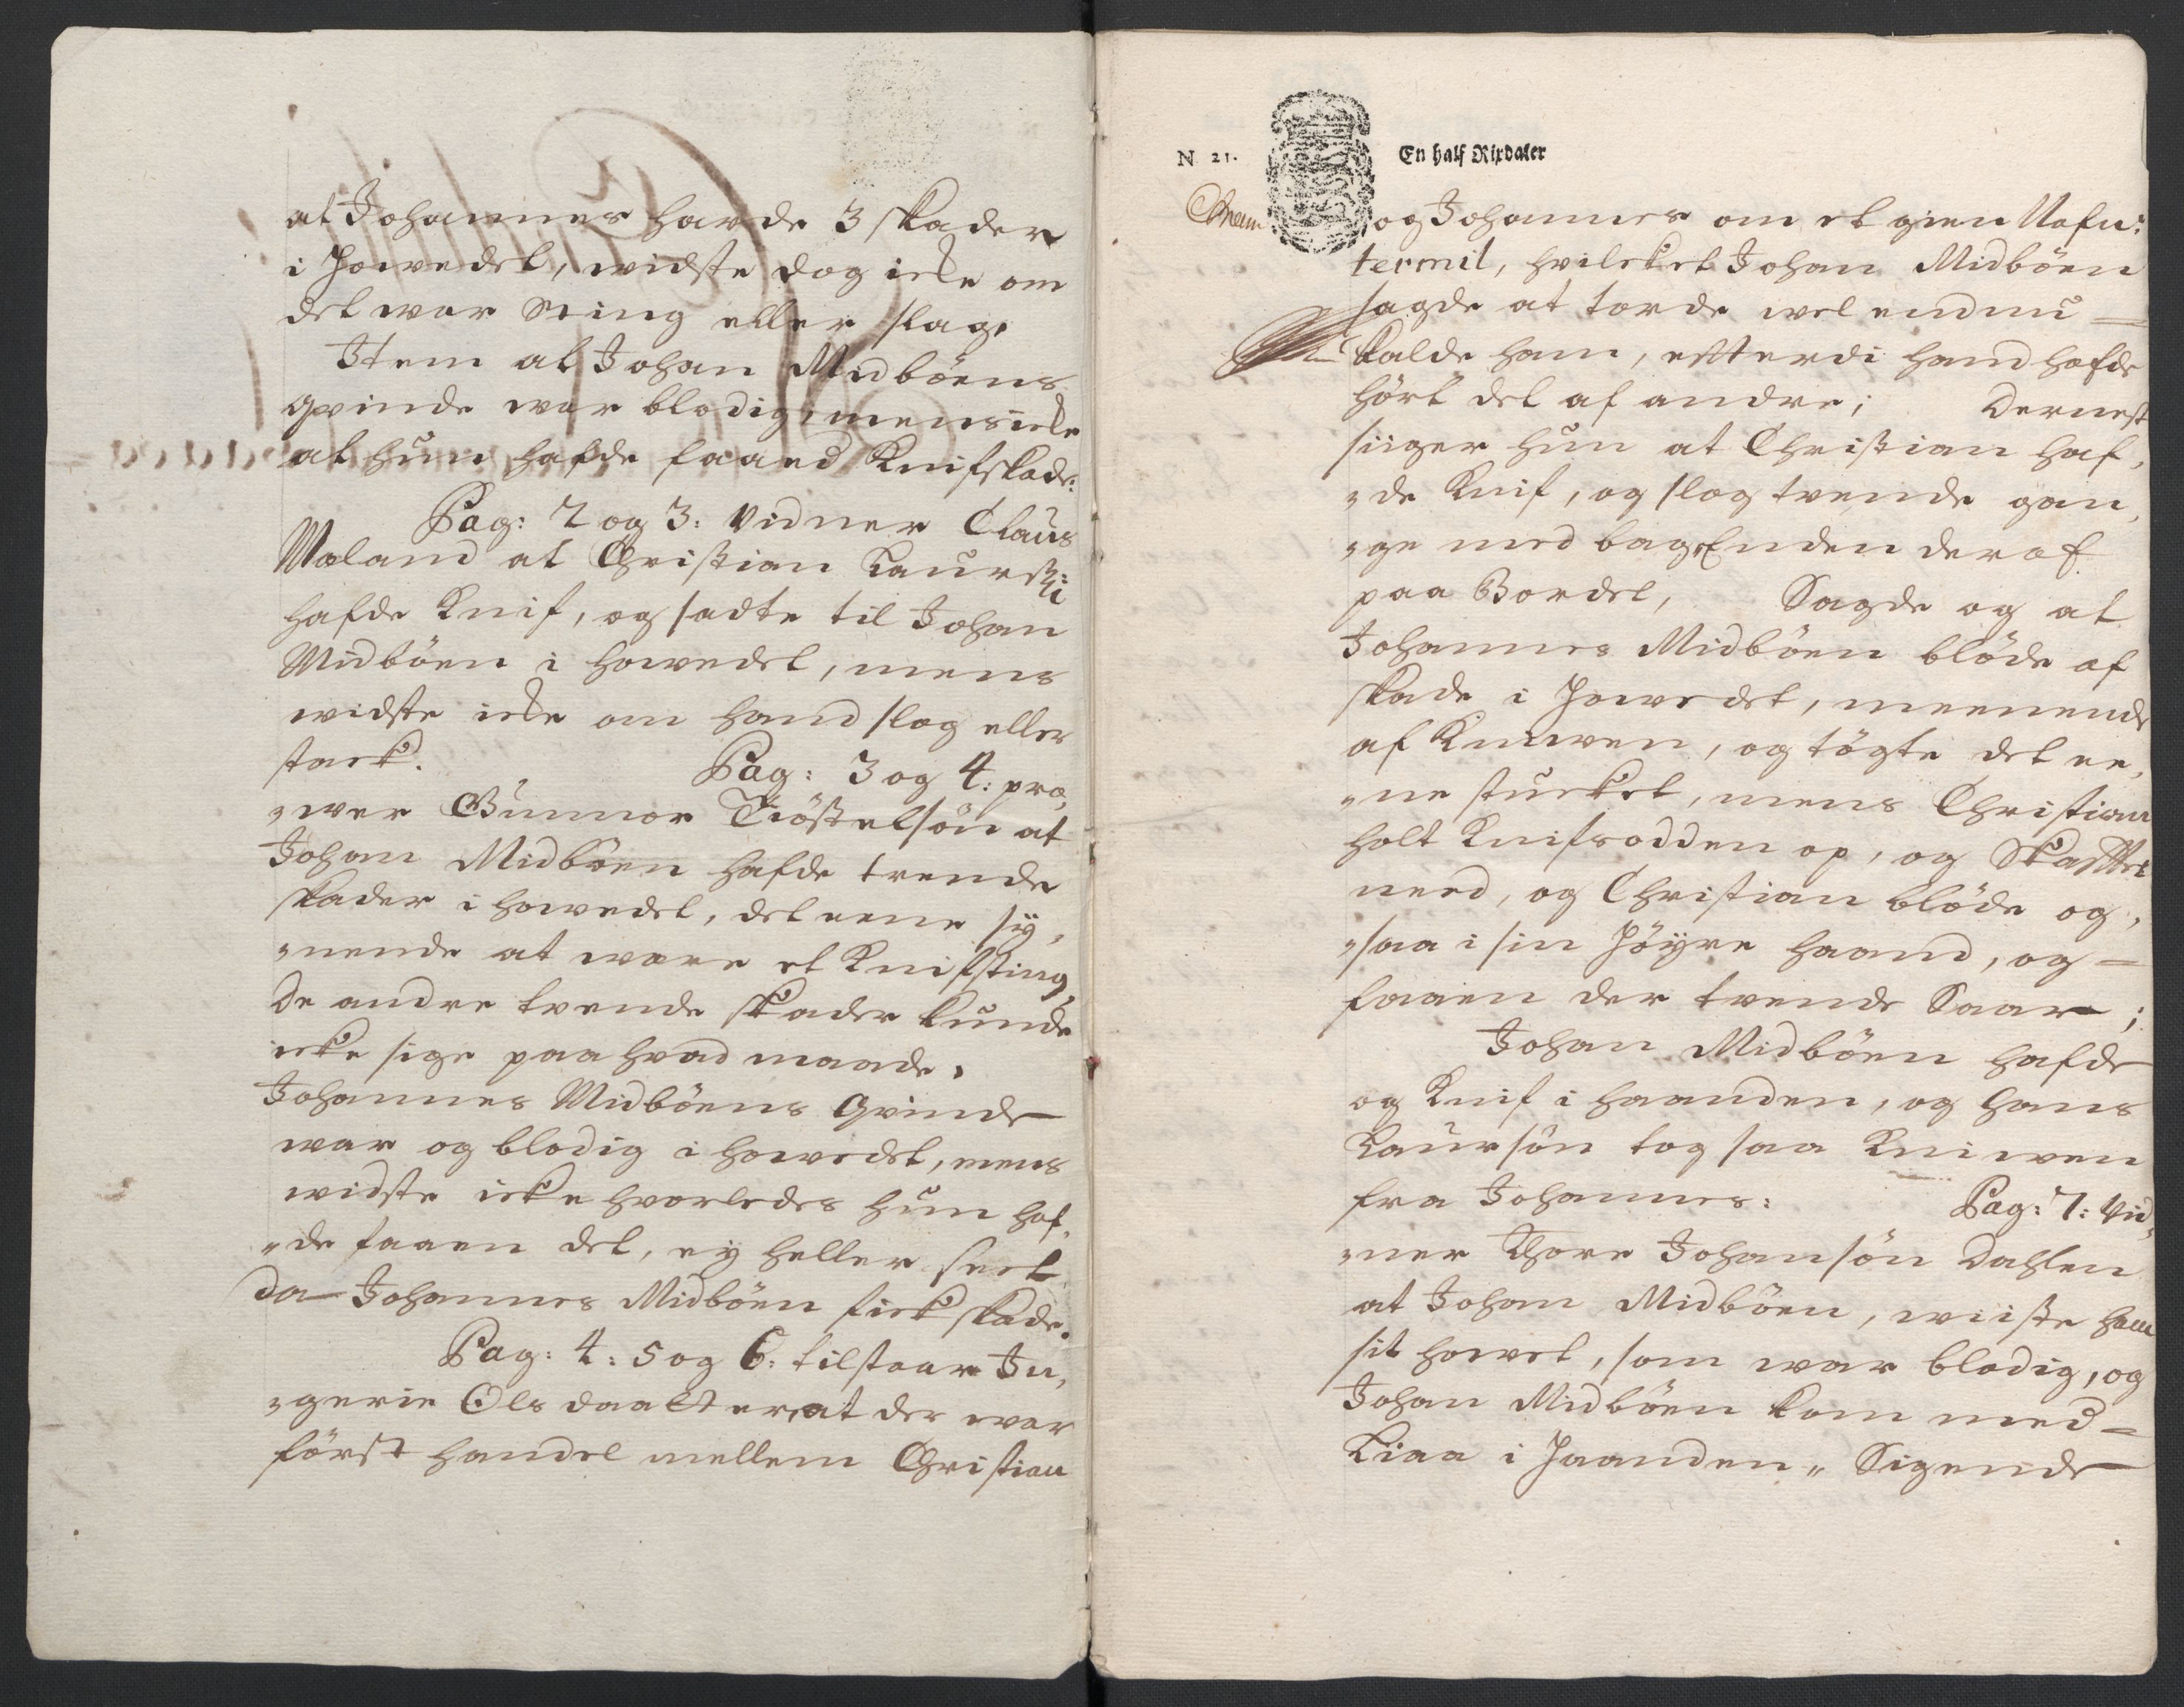 at Johannes hawde 3 skader
i Howedet, widste dog icke om
det war Sting eller slag.
Item at Johan Midböens
qvinde war blodig, mens icke
at hun hafde faaed Knifskade:
Pag: 2 og 3: Vidner Claus
Moland at Christian Laurss:
hafde Knif, og sadte til Johan
Midböen i howedet, mens
widste icke om hand slog eller
stack. Pag: 3 og 4: præ,
„wer Gunnor Tiöstelsön at
Johan Midböen hafde trende
skader i howedet, det eene sÿ,
„nende at ware et Knifsting,
De andre tvende skader kunde
icke sige paa hvad maade.
Johannes Midböens Qvinde
war og blodig i howedet, mens
widste icke hvorledes hun haf,
„de faaen det, ey heller seet
da Johannes Midböen fick skade.
Pag: 4: 5 og 6: tilstaar In,
„gerie Olsdaatter, at der war
först handel mellem Christian
N 21. En half Rixdaler
og Johannes om et gien Nafn:
termil, hvilcket Johan Midböen
sagde at torde wel endnu
kalde ham, efterdi hand hafde
hört det af andre; Dernest
siiger hun at Christian haf,
„de Knif, og slog tvende gan,
„ge med bag Enden deraf
paa Bordet, Sagde og at
Johannes Midböen blöde af
skade i Howedet, meenende
af Kniwen, og tögte det ee,
„ne stucket, mens Christian
holt Knifsodden op, og Skafftet
need, og Christian blöde og,
„saa i sin Höÿre haand, og
faaen der tvende Saar;
Johan Midböen hafde
og Knif i haanden, og hans
Laursön tog saa Kniwen
fra Johannes: Pag: 7: Vid,
„ner Thore Johansön Dahlen
at Johan Midböen, wiiste ham
sit howet, som war blodig, og
Johan Midböen kom med
Liaa i Haanden, Sigende